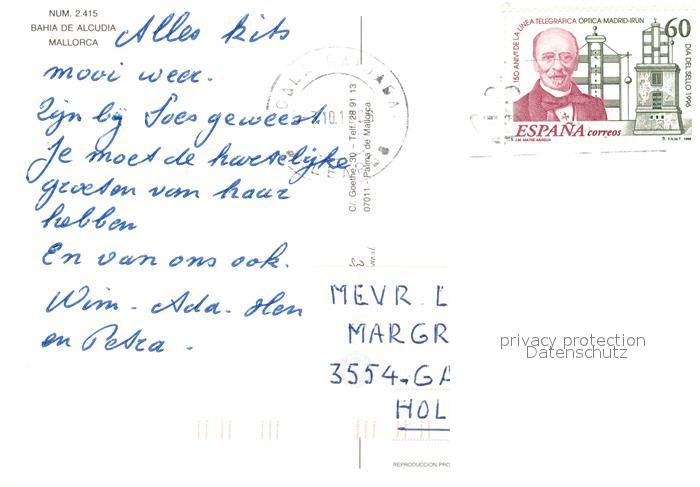 NUM. 2.415
BAHIA DE ALCUDIA
MALLORCA
Alles kits
mooi weer.
Zijn bij Loes geweest
Je moet de hartelijke
groeten van haar
hebben
En van ons ook.
Wim - Ada - Hen
en Petra.
C/. Goethe, 30 – Telf. 28 91 13
07011 - Palma de Mallorca
150 ANIV. DE LA LÍNEA TELEGRÁFICA ÓPTICA MADRID-IRÚN
60
DIA DEL SELLO 1996
ESPAÑA correos
MEVR. L
MARGR
3554-GA
HOL
privacy protection
Datenschutz
REPRODUCCION PRO